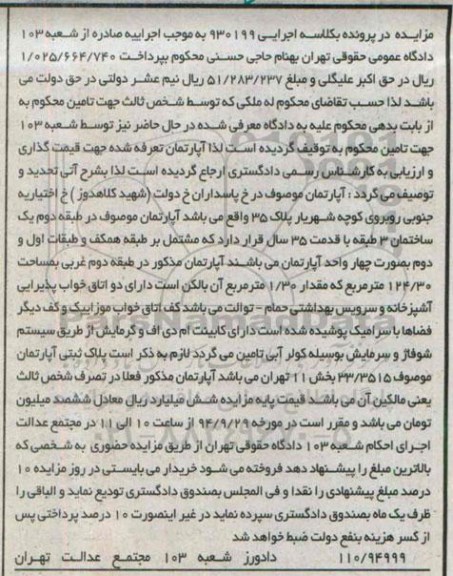 مزایده در پرونده بکلاسه اجرایی ۹۳۰۱۹۹ به موجب اجراییه صادره از شعبه ۱۰۳
دادگاه عمومی حقوقی تهران بهنام حاجی حسنی محکوم بپرداخت ۱/۰۲۵/۶۶۴/۷۴۰
ریال در حق اکبر علیگلی و مبلغ ۵۱/۲۸۳/۲۳۷ ریال نیم عشر دولتی در حق دولت می
باشد لذا حسب تقاضای محکوم له ملکی که توسط شخص ثالث جهت تامین محکوم به
از بابت بدهی محکوم علیه به دادگاه معرفی شده در حال حاضر نیز توسط شعبه ۱۰۳
جهت تامین محکوم به توقیف گردیده است لذا آپارتمان تعرفه شده جهت قیمت گذاری
و ارزیابی به کارشناس رسمی دادگستری ارجاع گردیده است لذا بشرح آتی تحدید و
توصیف می گردد : آپارتمان موصوف در خ پاسداران خ دولت (شهید کلاهدوز) خ اختیاریه
جنوبی روبروی کوچه شهریار پلاک ۳۵ واقع می باشد آپارتمان موصوف در طبقه دوم یک
ساختمان ۳ طبقه با قدمت ۳۵ سال قرار دارد که مشتمل بر طبقه همکف و طبقات اول و
دوم بصورت چهار واحد آپارتمان می باشند آپارتمان مذکور در طبقه دوم غربی بمساحت
۱۲۴/۳۰ مترمربع که مقدار ۱/۳۰ مترمربع آن بالکن است دارای دو اتاق خواب پذیرایی
آشپزخانه و سرویس بهداشتی حمام - توالت می باشد کف اتاق خواب موزاییک و کف دیگر
فضاها با سرامیک پوشیده شده است دارای کابینت ام دی اف و گرمایش از طریق سیستم
شوفاژ و سرمایش بوسیله کولر آبی تامین می گردد لازم به ذکر است پلاک ثبتی آپارتمان
موصوف ۳۳/۳۵۱۵ بخش ۱۱ تهران می باشد آپارتمان مذکور فعلا در تصرف شخص ثالث
یعنی مالکین آن می باشد قیمت پایه مزایده شش میلیارد ریال معادل ششصد میلیون
تومان می باشد و مقرر است در مورخه ۹۴/۹/۲۵ از ساعت ۱۰ الی ۱۱ در مجتمع عدالت
اجرای احکام شعبه ۱۰۳ دادگاه حقوقی تهران از طریق مزایده حضوری به شخصی که
بالاترین مبلغ را پیشنهاد دهد فروخته می شود خریدار می بایستی در روز مزایده ۱۰
درصد مبلغ پیشنهادی را نقدا و فی المجلس بصندوق دادگستری تودیع نماید و الباقی را
ظرف یک ماه بصندوق دادگستری سپرده نماید در غیر اینصورت ۱۰ درصد پرداختی پس
از کسر هزینه بنفع دولت ضبط خواهد شد
۱۱۰/۹۴۹۹۹ دادورز شعبه ۱۰۳ مجتمع عدالت تهران